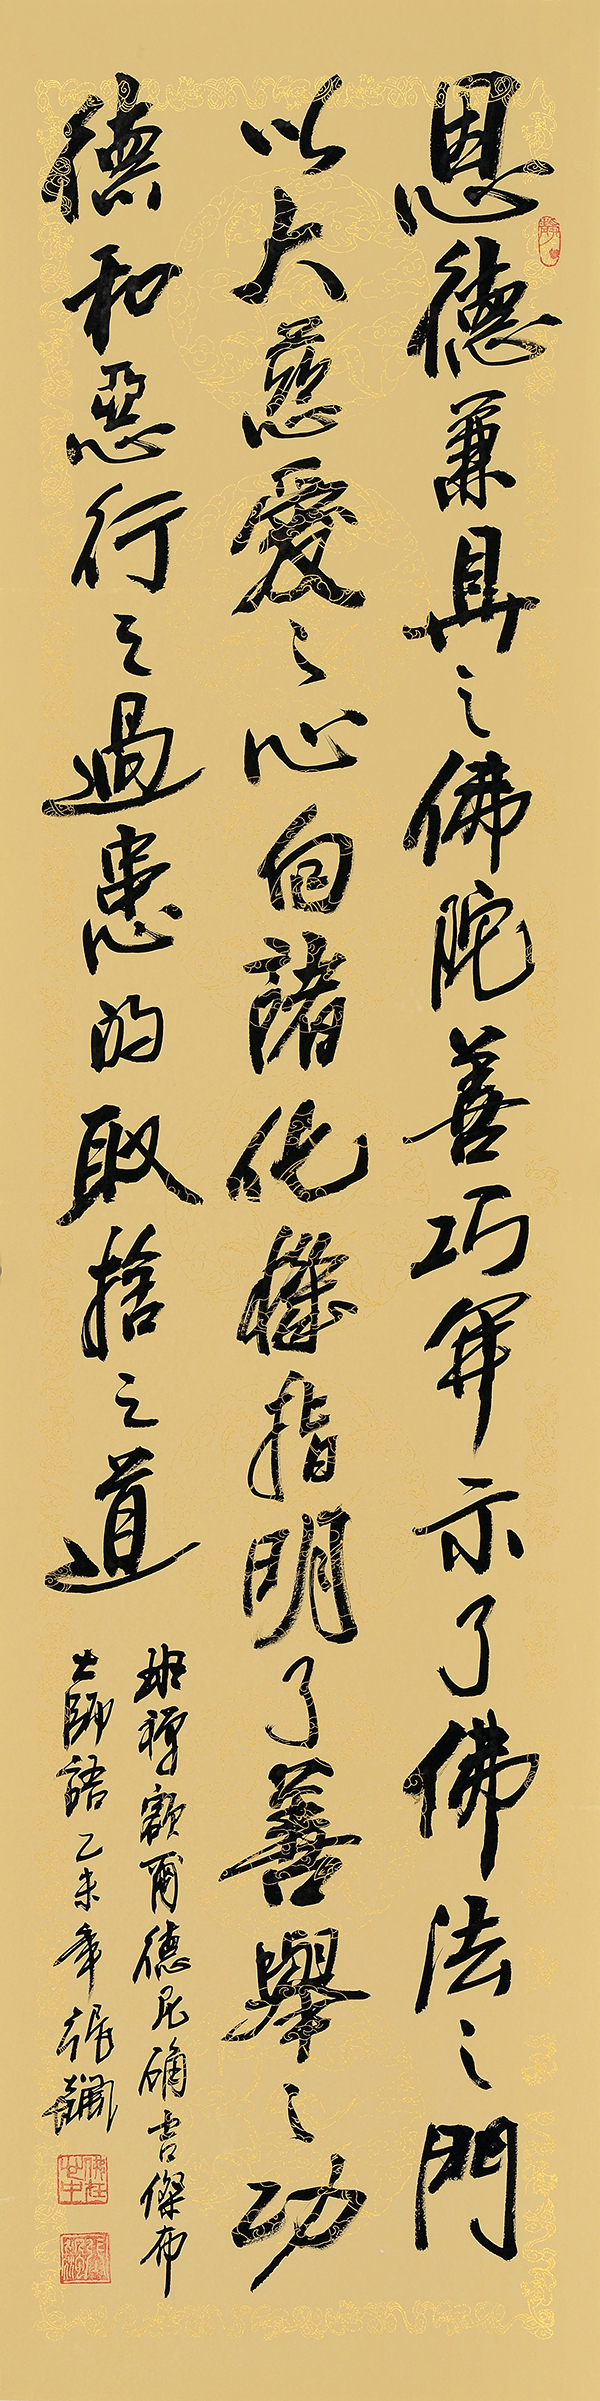 恩德兼具之佛陀善巧開示了佛法之門
以大慈愛之心向諸化機指明了善舉之功
德和惡行之過患的取捨之道
班禪額爾德尼确吉傑布
大師語乙未年張飆